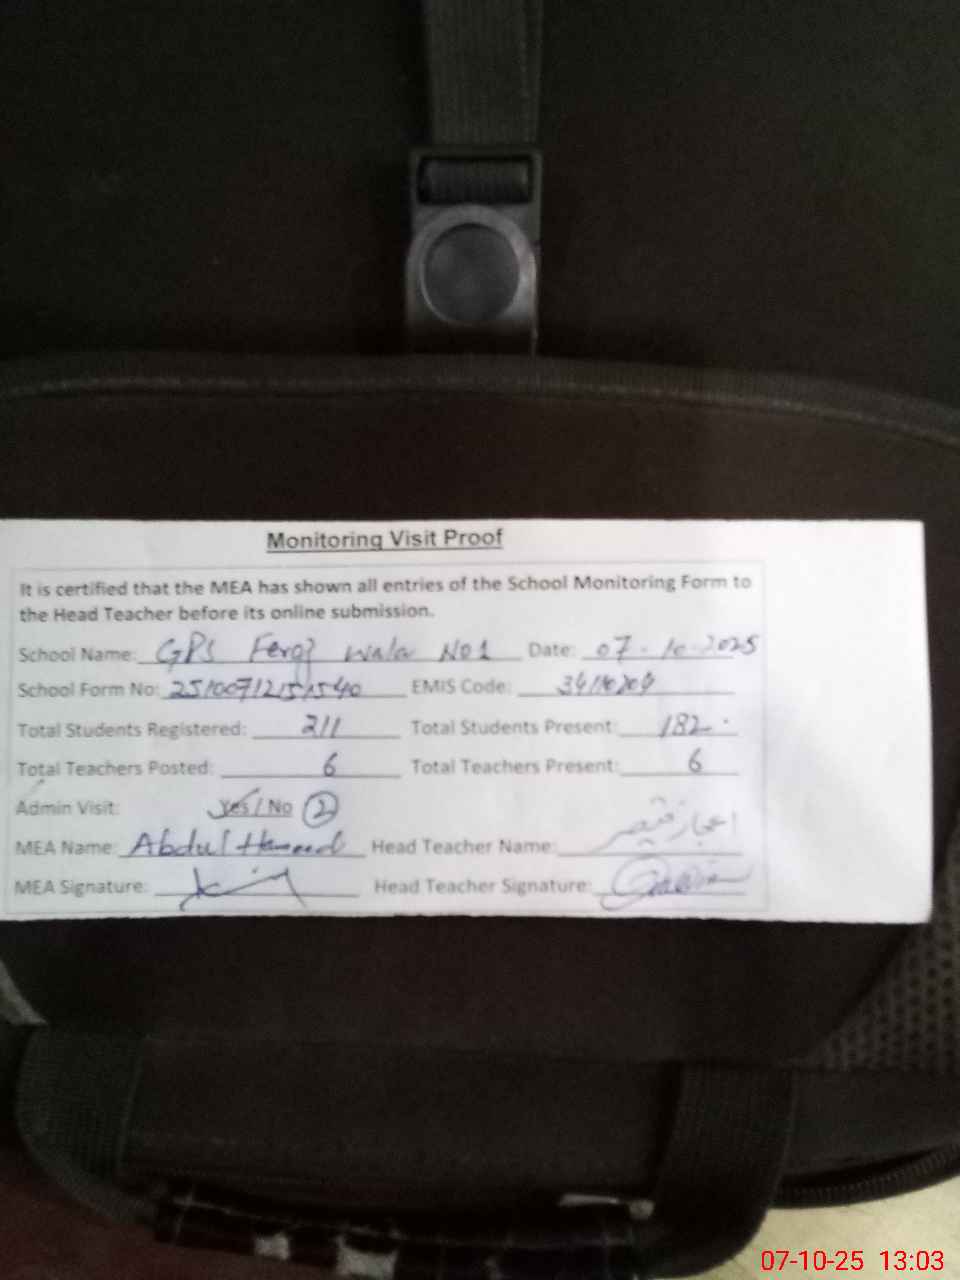 Monitoring Visit Proof
It is certified that the MEA has shown all entries of the School Monitoring Form to
the Head Teacher before its online submission.
School Name: GPS Wala No 1 Date: 07-10-2025
School Form No: EMIS Code:
Total Students Registered: 211 Total Students Present: 182
Total Teachers Posted: 6 Total Teachers Present: 6
Admin Visit: Yes / No 2
MEA Name: Abdul Hameed Head Teacher Name: اعجاز قیصر
MEA Signature: Head Teacher Signature:
07-10-25 13:03